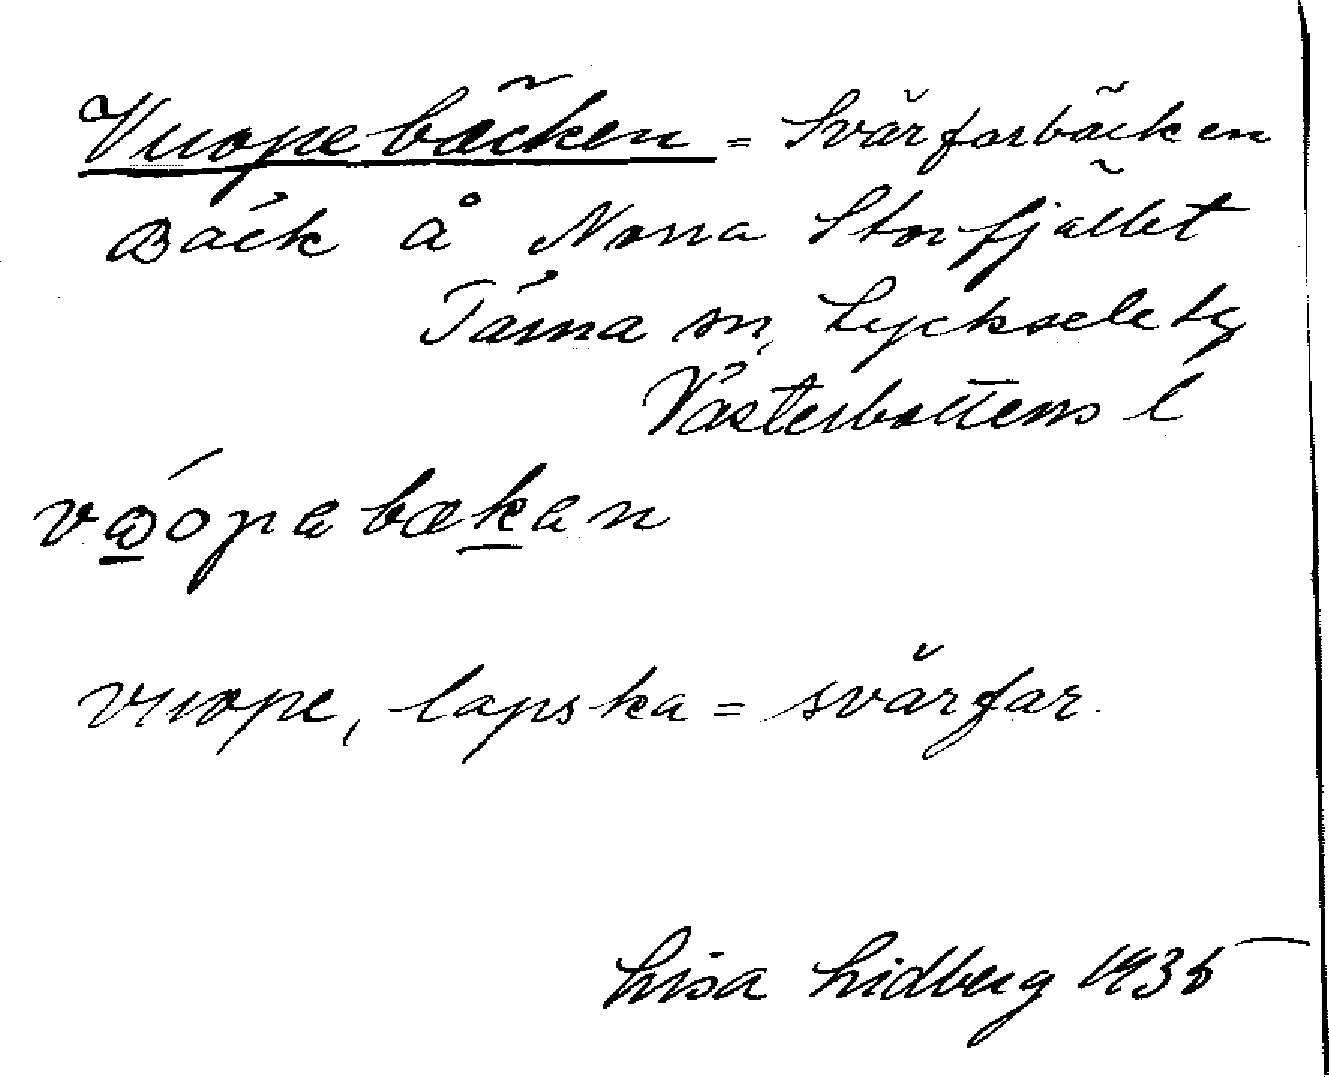 Vuopebäcken = Svärfarbäcken
Bäck å Norra Storfjället
Tärna sn, Lycksele tg
Västerbottens l
vuope, lapska = svärfar.
Lisa Lidberg 1935